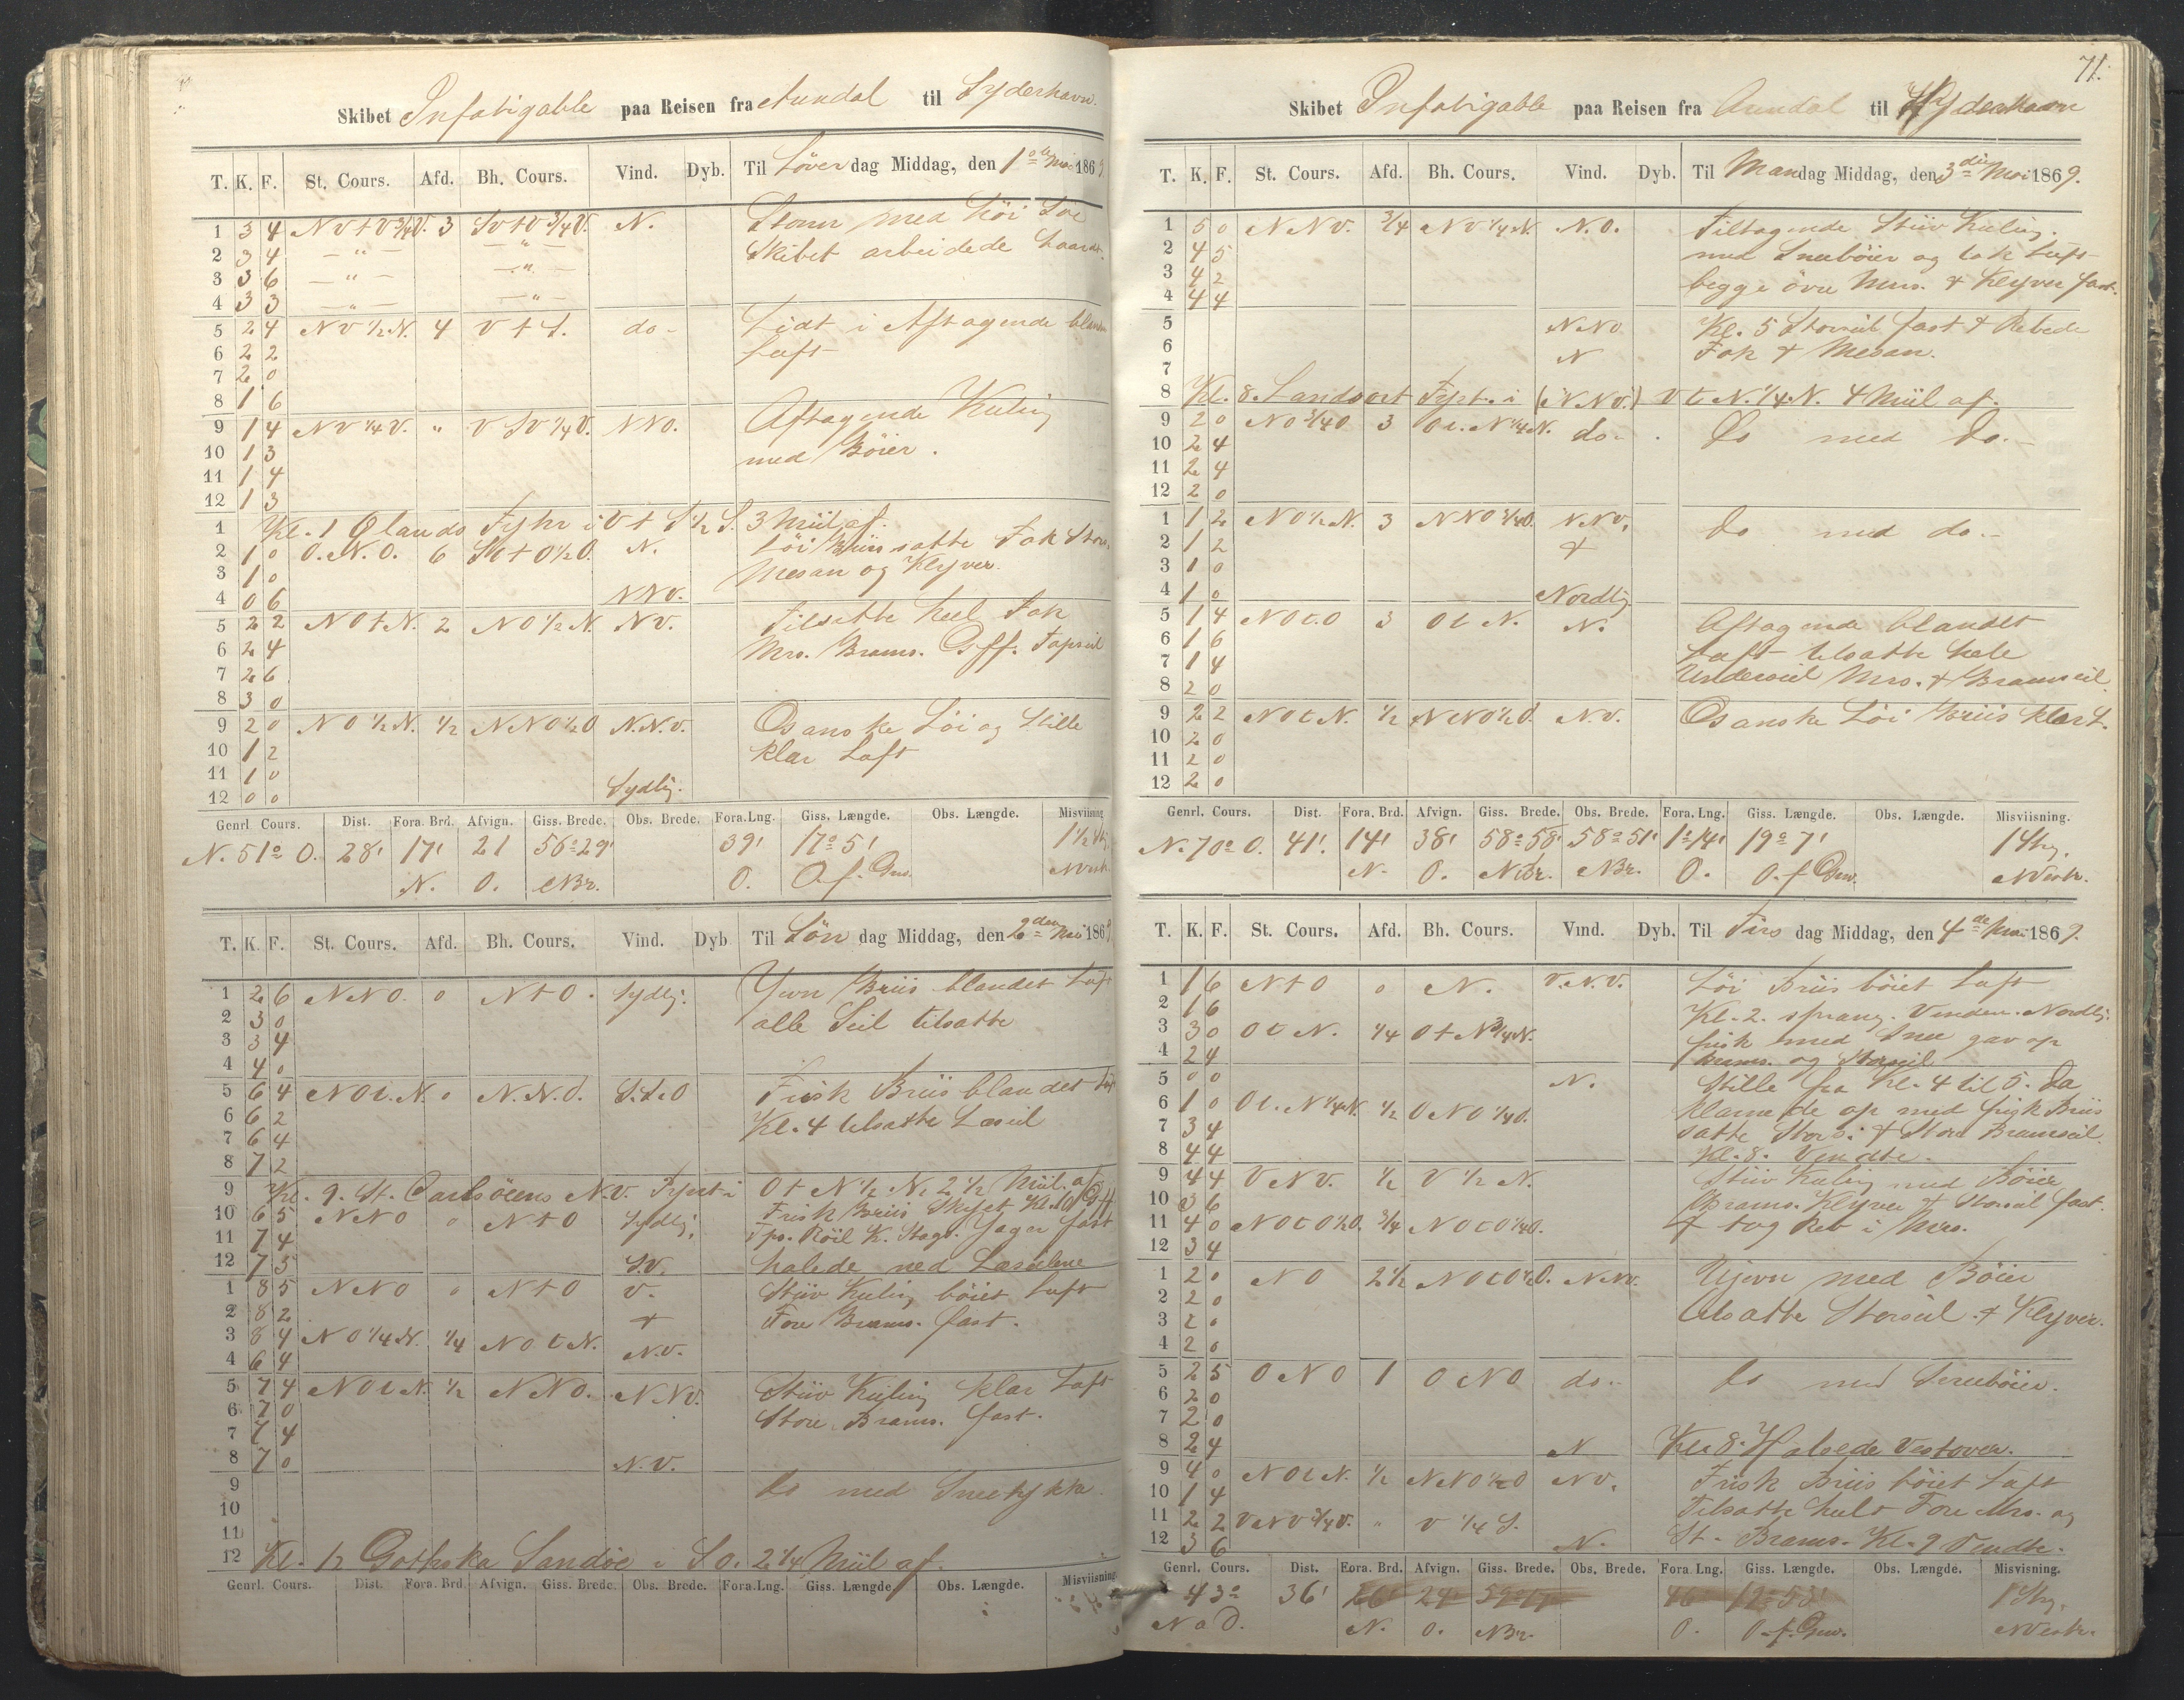 Skibet Infatigable paa Reisen fra Arendal til Syderhavn.
T. K. F. St. Cours. Afd. Bh. Cours. Vind. Dyb. Til Løver dag Middag, den 1ste Mai 1869
1 3 4 NVtV 3/4 V. 3 SVtV 3/4 V. N. Storm med høi Søe
2 3 4 — " — — " — Skibet arbeidede haardt.
3 3 6 — " — — " —
4 3 3 — " — — " —
5 2 4 NV 1/2 N. 4 V t S. do - Lidt i Aftagende blandet
6 2 2 Luft
7 2 0
8 1 6
9 1 4 NV 1/4 V. " V SV 1/4 V. NNO. Aftagende Kuling
10 1 3 med Bøier.
11 1 4
12 1 3
1 Kl. 1 Ølands Fyhr i V t S 1/2 S. 3 Miil af.
2 1 0 O.N.O. 6 SO t O 1/2 O. N. Løi Briis satte Fok Stors.
3 1 0 Mesan og Klyver.
4 0 6 NNV.
5 2 2 NO t N. 2 NO 1/2 N. NV. Tilsatte heel Fok
6 2 4 Mrs. Brams. Gff. Topseil
7 2 6
8 3 0
9 2 0 NO 1/2 N. 1/2 NNO 1/2 O N.N.V. Os anske Løi og Stille
10 1 2 klar Luft
11 1 0
12 0 0 Sydlig.
Genrl. Cours. Dist. Fora. Brd. Afvign. Giss. Brede. Obs. Brede. Fora. Lng. Giss. Længde. Obs. Længde. Misviisning
N. 51° O. 28' 17' 21 56°29' 39' 17°5' 1 1/2 Str.
N. O. NBr. O. O. f. Grw. NVestr.
T. K. F. St. Cours. Afd. Bh. Cours. Vind. Dyb Til Søn dag Middag, den 2den Mai 1869
1 2 6 NNO. 0 N t O. Sydlig. Jevn Briis blandet Luft
2 3 0 alle Seil tilsatte
3 3 4
4 4 0
5 6 4 NO t. N. 0 N.N.O. S.S.O Frisk Briis blandet Luft
6 6 2 Kl. 4 tilsatte Læseil
7 6 4
8 7 2
9 Kl. 9. St. Carlsöens N.V. Pynt i O t N 1/2 N. 2 1/2 Miil. af
10 6 5 NNO 0 N t O Sydlig. Frisk Briis Skyet Kl. 10 Gff.
11 7 4 Tps. Röil K. Stags. Jager fast
12 7 5 S.V. halede ned Læseilene
1 8 5 NNO 0 N t O V. Stiiv Kuling böiet Luft
2 8 2 + Fore Brams. fast.
3 8 4 NO 1/4 N. 1/4 NO t N.
4 6 4 N.V.
5 7 4 NO t N. 1/2 NNO. NNV. Stiiv Kuling klar Luft
6 7 0 Store Brams. fast.
7 7 4
8 7 0 N.V.
9 Do med Sneetykke.
10
11
12 Kl. 12 Gothska Sandöe i SO. 2 1/4 Miil af.
Genrl. Cours. Dist. Fora. Brd. Afvign. Giss. Brede. Obs. Brede. Fora. Lng. Giss. Længde Obs. Længde. Misviisning
71.
Skibet Infatigable paa Reisen fra Arendal til Syderhavn
T. K. F. St. Cours. Afd. Bh. Cours. Vind. Dyb. Til Mandag Middag, den 3die Mai 1869.
1 5 0 NNV. 3/4 NV 1/4 N. N.O. Tiltagende Stiiv Kuling.
2 4 5 med Sneeböier og tok Luft
3 4 2 begge övre Mrs. + Klyver fast.
4 4 4
5 NNO Kl. 5 Storseil fast + Rebede
6 N Fok + Mesan.
7
8 Kl. 8. Landsort Fyr. i (i NV.) V t N. 1/4 N. 4 Miil af.
9 2 0 NO 3/4 O 3 O t. N 1/4 N. do.. Do med Do.-
10 2 4
11 2 4
12 2 0
1 1 2 NO 1/2 N. 3 NNO 3/4 O. NNV. Do med do.-
2 1 2 +
3 1 0
4 1 0 Nordlig
5 1 4 NO t. O 3 O t N. N. Aftagende blandet
6 1 6 Luft tilsatte hele
7 1 4 Underseil Mrs. + Bramseil.
8 2 0
9 2 2 NO t N. 1/2 NNO 1/2 O. N.V. Os anske Løi Briis klar L.
10 2 0
11 2 0
12 2 0
Genrl. Cours. Dist. Fora. Brd. Afvign. Giss. Brede. Obs. Brede. Fora. Lng. Giss. Længde. Obs. Længde. Misviisning
N. 70° O. 41'. 14' 38' 58°58' 58°51' 1°14' 19°7' 1 Str.
N. O. NBr. NBr. O. O. f Grw. NVestr.
T. K. F. St. Cours. Afd. Bh. Cours. Vind. Dyb. Til Tirs dag Middag, den 4de Mai 1869.
1 1 6 N t O 0 N. V.N.V. Løi Briis böiet Luft
2 1 6 Kl. 2. sprang Vinden Nordlig.
3 3 0 O t N. 1/4 O t N 3/4 N. frisk med Snee gav op
4 2 4 Brams. og Storseil
5 0 0 N. Stille fra Kl. 4 til 5. Da
6 1 0 O t. N 1/4 N. 1/2 ONO 1/4 O. klarnede op med frisk Briis
7 3 4 satte Stors. + Store Bramseil.
8 4 4 Kl. 8. Vendte.
9 4 4 V NV. 1/2 V 1/2 N. Stiiv Kuling med Böier
10 3 6 Brams. Klyver + Storseil fast.
11 4 0 NO t O 1/2 O. 3/4 NO t O 1/4 O. + tog Reb i Mrs.
12 3 4
1 2 0 NO 2 1/2 NO t O 1/2 O. NNV. Ujevn med Böier
2 2 0 tilsatte Storseil + Klyver.
3 2 0
4 2 0
5 2 5 ONO 1 ONO do.. Do med Sneeböier.
6 2 0
7 2 0
8 2 4 N Kl. 8. Halsede Vestover.
9 4 0 NO t N. 1/2 NNO 1/2 O NV. Frisk Briis böiet Luft
10 1 4 Tilsatte heelt Fore Mrs. og
11 2 2 VNV 3/4 V. " V 1/4 S. St. Brams. Kl. 9 Vendte.
12 3 6 N.
Genrl. Cours. Dist. Fora. Brd. Afvign. Giss. Brede. Obs. Brede. Fora Lng. Giss. Længde. Obs. Længde. Misvisning.
43° 36' 26' 24' 46' 19°53' 1 Str.
N a O. N. O. NBr. O. O. f. Grw. NVestr.